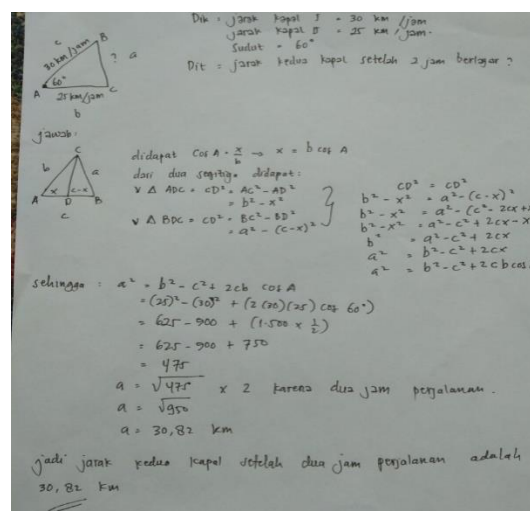 Dik : jarak kapal I = 30 km/jam
jarak kapal II = 25 km/jam.
Sudut = 60°
Dit = jarak kedua kapal setelah 2 jam berlayar ?
c B
30 km/jam ? a
60°
A 25 km/jam C
b
jawab :
C
b a
x c-x
A D B
c
didapat cos A = x/b → x = b cos A
dari dua segitiga didapat :
v △ ADC = CD² = AC² - AD²
= b² - x²
v △ BDC = CD² = BC² - BD²
= a² - (c-x)²
CD² = CD²
b² - x² = a² - (c-x)²
b² - x² = a² - (c² - 2cx +
b² - x² = a² - c² + 2cx - x
b² = a² - c² + 2cx
a² = b² - c² + 2cx
a² = b² - c² + 2cb cos
sehingga : a² = b² - c² + 2cb cos A
= (25)² - (30)² + (2(30)(25) cos 60°)
= 625 - 900 + (1.500 x 1/2)
= 625 - 900 + 750
= 475
a = √475 x 2 karena dua jam perjalanan.
a = √950
a = 30,82 km
jadi jarak kedua kapal setelah dua jam perjalanan adalah
30,82 km